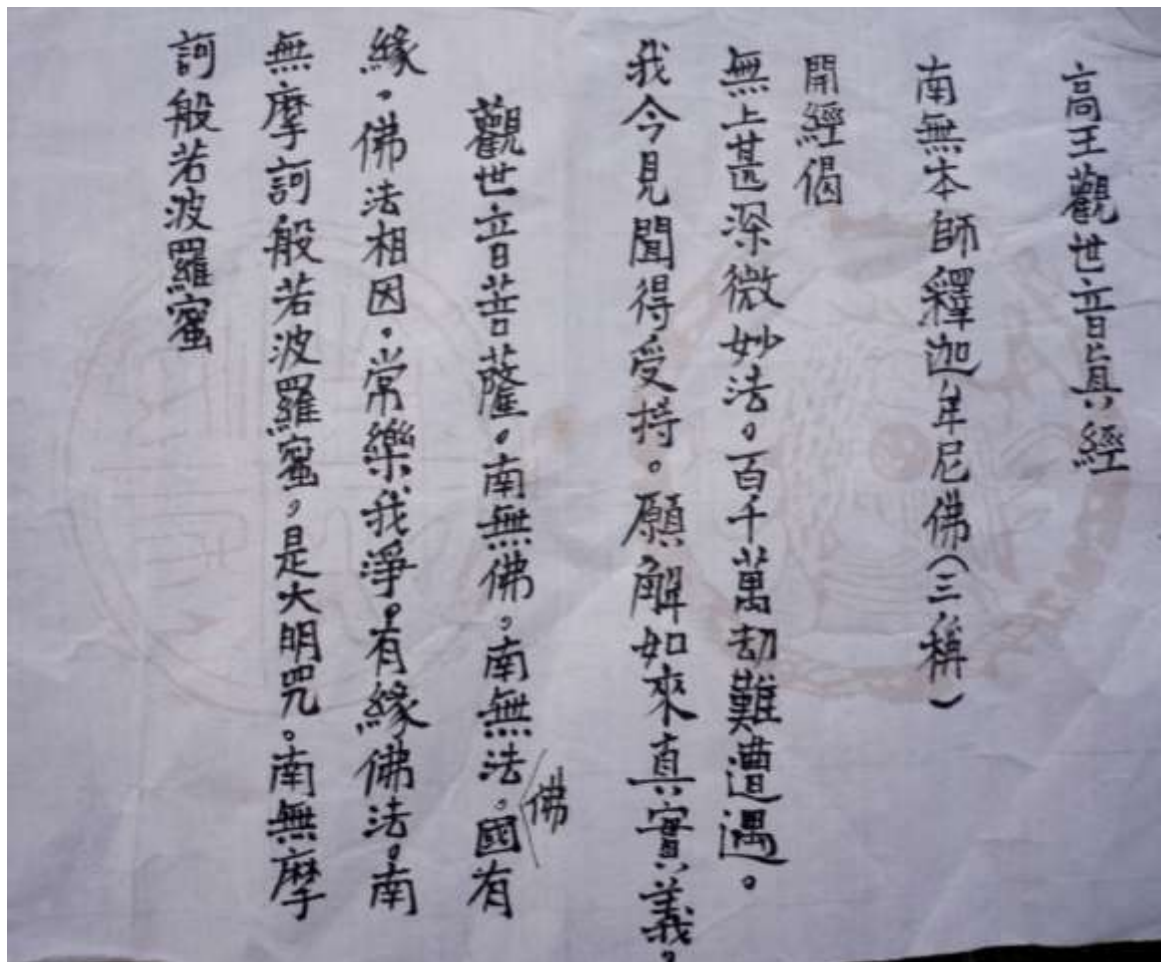 高王觀世音真經
南無本師釋迦牟尼佛(三稱)
開經偈
無上甚深微妙法。百千萬劫難遭遇。
我今見聞得受持。願解如來真實義。
觀世音菩薩。南無佛。南無法。佛國有
緣。佛法相因。常樂我淨。有緣佛法。南
無摩訶般若波羅蜜。是大明咒。南無摩
訶般若波羅蜜